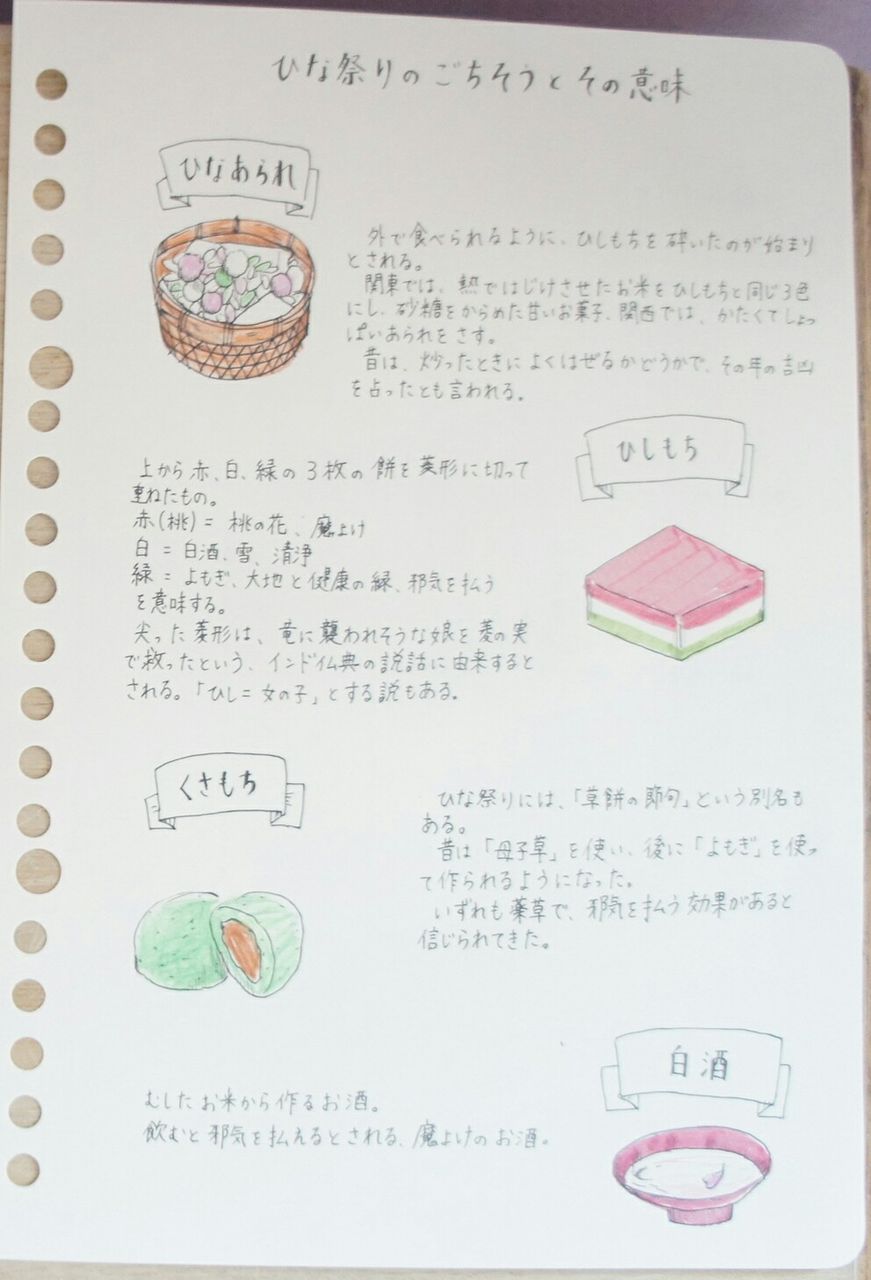 ひな祭りのごちそうとその意味
ひなあられ
外で食べられるように、ひしもちを砕いたのが始まり
とされる。
関東では、熱ではじけさせたお米をひしもちと同じ3色
にし、砂糖をからめた甘いお菓子、関西では、かたくてしょっ
ぱいあられをさす。
昔は、炒ったときによくはぜるかどうかで、その年の吉凶
を占ったとも言われる。
ひしもち
上から赤、白、緑の3枚の餅を菱形に切って
重ねたもの。
赤(桃)=桃の花、魔よけ
白=白酒、雪、清浄
緑=よもぎ、大地と健康の緑、邪気を払う
を意味する。
尖った菱形は、竜に襲われそうな娘を菱の実
で救ったという、インド仏典の説話に由来すると
される。「ひし=女の子」とする説もある。
くさもち
ひな祭りには、「草餅の節句」という別名も
ある。
昔は「母子草」を使い、後に「よもぎ」を使っ
て作られるようになった。
いずれも薬草で、邪気を払う効果があると
信じられてきた。
白酒
むしたお米から作るお酒。
飲むと邪気を払えるとされる、魔よけのお酒。